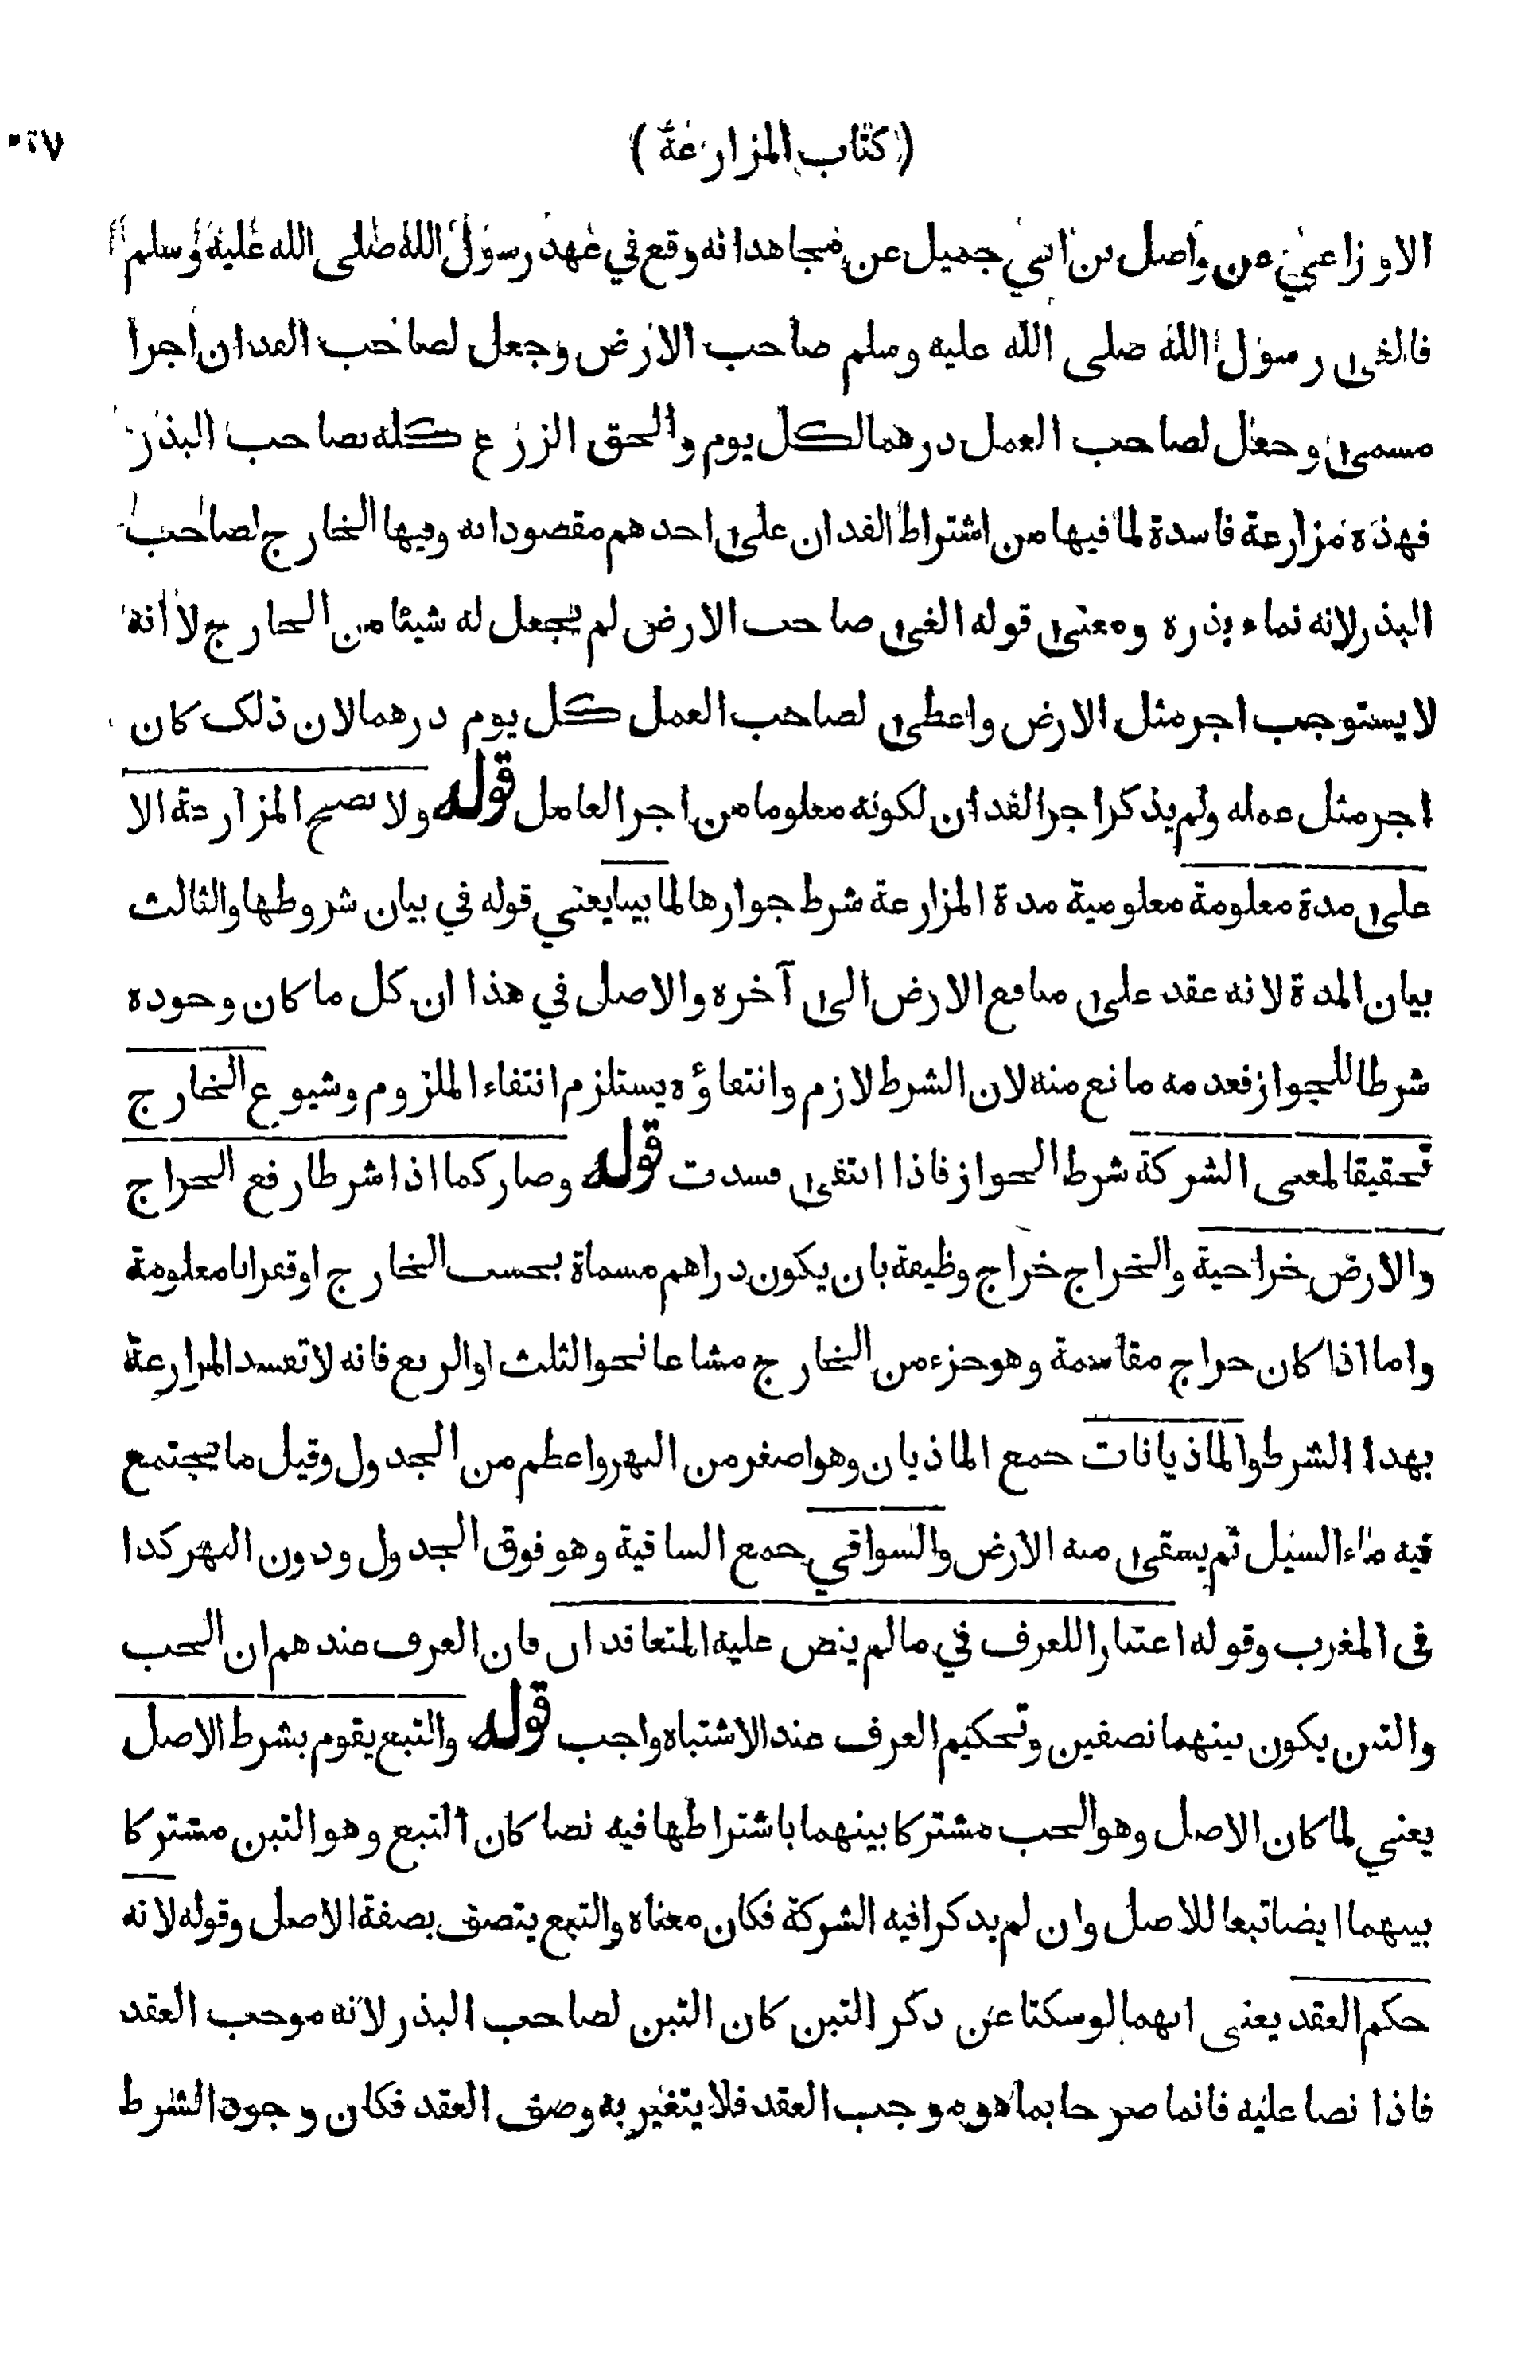 (كتاب المزارعة)
الاوزاعي عن واصل بن ابي جميل عن مجاهد انه وقع في عهد رسول الله صلى الله عليه وسلم
فالغى رسول الله صلى الله عليه وسلم صاحب الارض وجعل لصاحب الفدان اجرا
مسمى وجعل لصاحب العمل درهما لكل يوم والحق الزرع كله لصاحب البذر
فهذه مزارعة فاسدة لما فيها من اشتراط الفدان على احدهم مقصودا به وفيها الخارج لصاحب
البذر لانه نماء بذره ومعنى قوله الغى صاحب الارض لم يجعل له شيئا من الخارج لا انه
لا يستوجب اجر مثل الارض واعطى لصاحب العمل كل يوم درهما لان ذلك كان
اجر مثل عمله ولم يذكر اجر الفدان لكونه معلوما من اجر العامل قوله ولا تصح المزارعة الا
على مدة معلومة معلومية مدة المزارعة شرط جوازها لما بينا يعني قوله في بيان شروطها والثالث
بيان المدة لانه عقد على منافع الارض الى آخره والاصل في هذا ان كل ما كان وجوده
شرطا للجواز فعدمه مانع منه لان الشرط لازم وانتفاؤه يستلزم انتفاء الملزوم وشيوع الخارج
تحقيقا لمعنى الشركة شرط الجواز فاذا انتفى فسدت قوله وصار كما اذا شرطا رفع الخراج
والارض خراجية والخراج خراج وظيفة بان يكون دراهم مسماة بحسب الخارج او قفزانا معلومة
واما اذا كان خراج مقاسمة وهو جزء من الخارج مشاعا نحو الثلث او الربع فانه لا تفسد المزارعة
بهذا الشرط والماذيانات جمع الماذيان وهو اصغر من النهر واعظم من الجدول وقيل ما يجتمع
فيه ماء السيل ثم يسقى منه الارض والسواقي جمع الساقية وهو فوق الجدول ودون النهر كذا
في المغرب وقوله اعتبارا للعرف في ما لم ينص عليه المتعاقدان فان العرف عندهم ان الحب
والتبن يكون بينهما نصفين وتحكيم العرف عند الاشتباه واجب قوله والتبع يقوم بشرط الاصل
يعني لما كان الاصل وهو الحب مشتركا بينهما باشتراطها فيه نصا كان التبع وهو التبن مشتركا
بينهما ايضا تبعا للاصل وان لم يذكرا فيه الشركة فكان معناه والتبع يتصف بصفة الاصل وقوله لانه
حكم العقد يعني انهما لو سكتا عن ذكر التبن كان التبن لصاحب البذر لانه موجب العقد
فاذا نصا عليه فانما صرحا بما هو موجب العقد فلا يتغير به وصف العقد فكان وجود الشرط